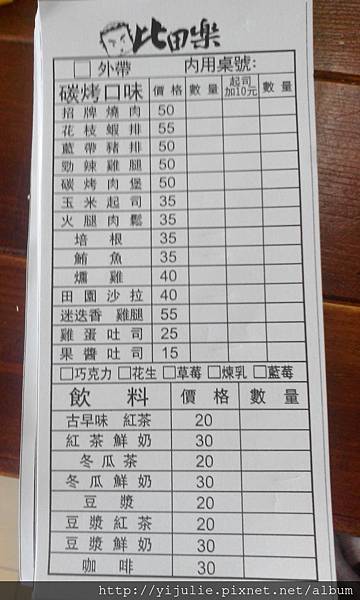 比田樂
□外帶 內用桌號:
碳烤口味 價格 數量 起司加10元 數量
招牌燒肉 50
花枝蝦排 55
藍帶豬排 50
勁辣雞腿 50
碳烤肉堡 50
玉米起司 35
火腿肉鬆 35
培根 35
鮪魚 35
燻雞 40
田園沙拉 40
迷迭香 雞腿 55
雞蛋吐司 25
果醬吐司 15
□巧克力 □花生 □草莓 □煉乳 □藍莓
飲料 價格 數量
古早味 紅茶 20
紅茶鮮奶 30
冬瓜茶 20
冬瓜鮮奶 30
豆漿 20
豆漿紅茶 20
豆漿鮮奶 30
咖啡 30
http://yijulie.pixnet.net/album